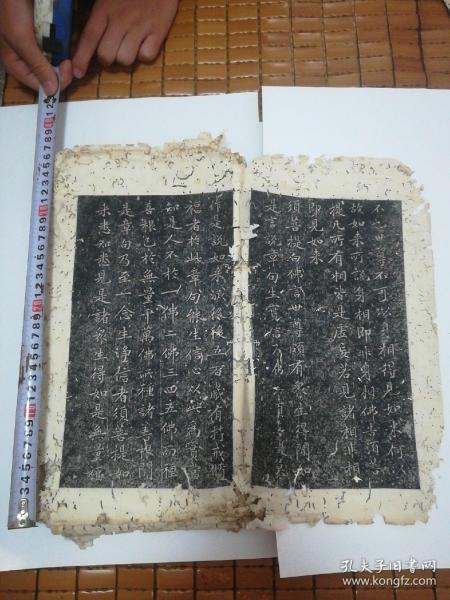 不也世尊不可以身相得見如來何以
故如來所說身相即非身相佛告須菩
提凡所有相皆是虛妄若見諸相非相
即見如來
須菩提白佛言世尊頗有眾生得聞如
是言說章句生實信不佛告須菩提莫
作是說如來滅後後五百歲有持戒脩
福者於此章句能生信心以此為
知是人不於一佛二佛三四五佛而種
善根已於無量千萬佛所種諸善根聞
是章句乃至一念生淨信者須菩提如
來悉知悉見是諸眾生得如是無量福
孔夫子旧书网
www.kongfz.com